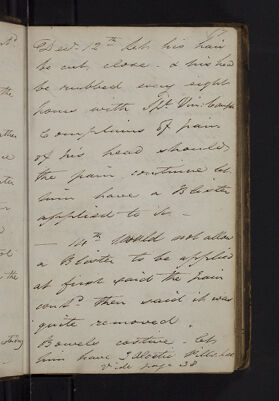 Decr. 12th let his hair
be cut close - & his head
be rubbed every eight
hours with Spt. Vin: Camph
Complains of pain
of his head should
the pain continue let
him have a Blister
applied to it -
- 14th Would not allow
a Blister to be applied
at first said the pain
contd. then said it was
quite removed.
Bowels costive - let
him have 2 Aloetic Pills
Vide page 38